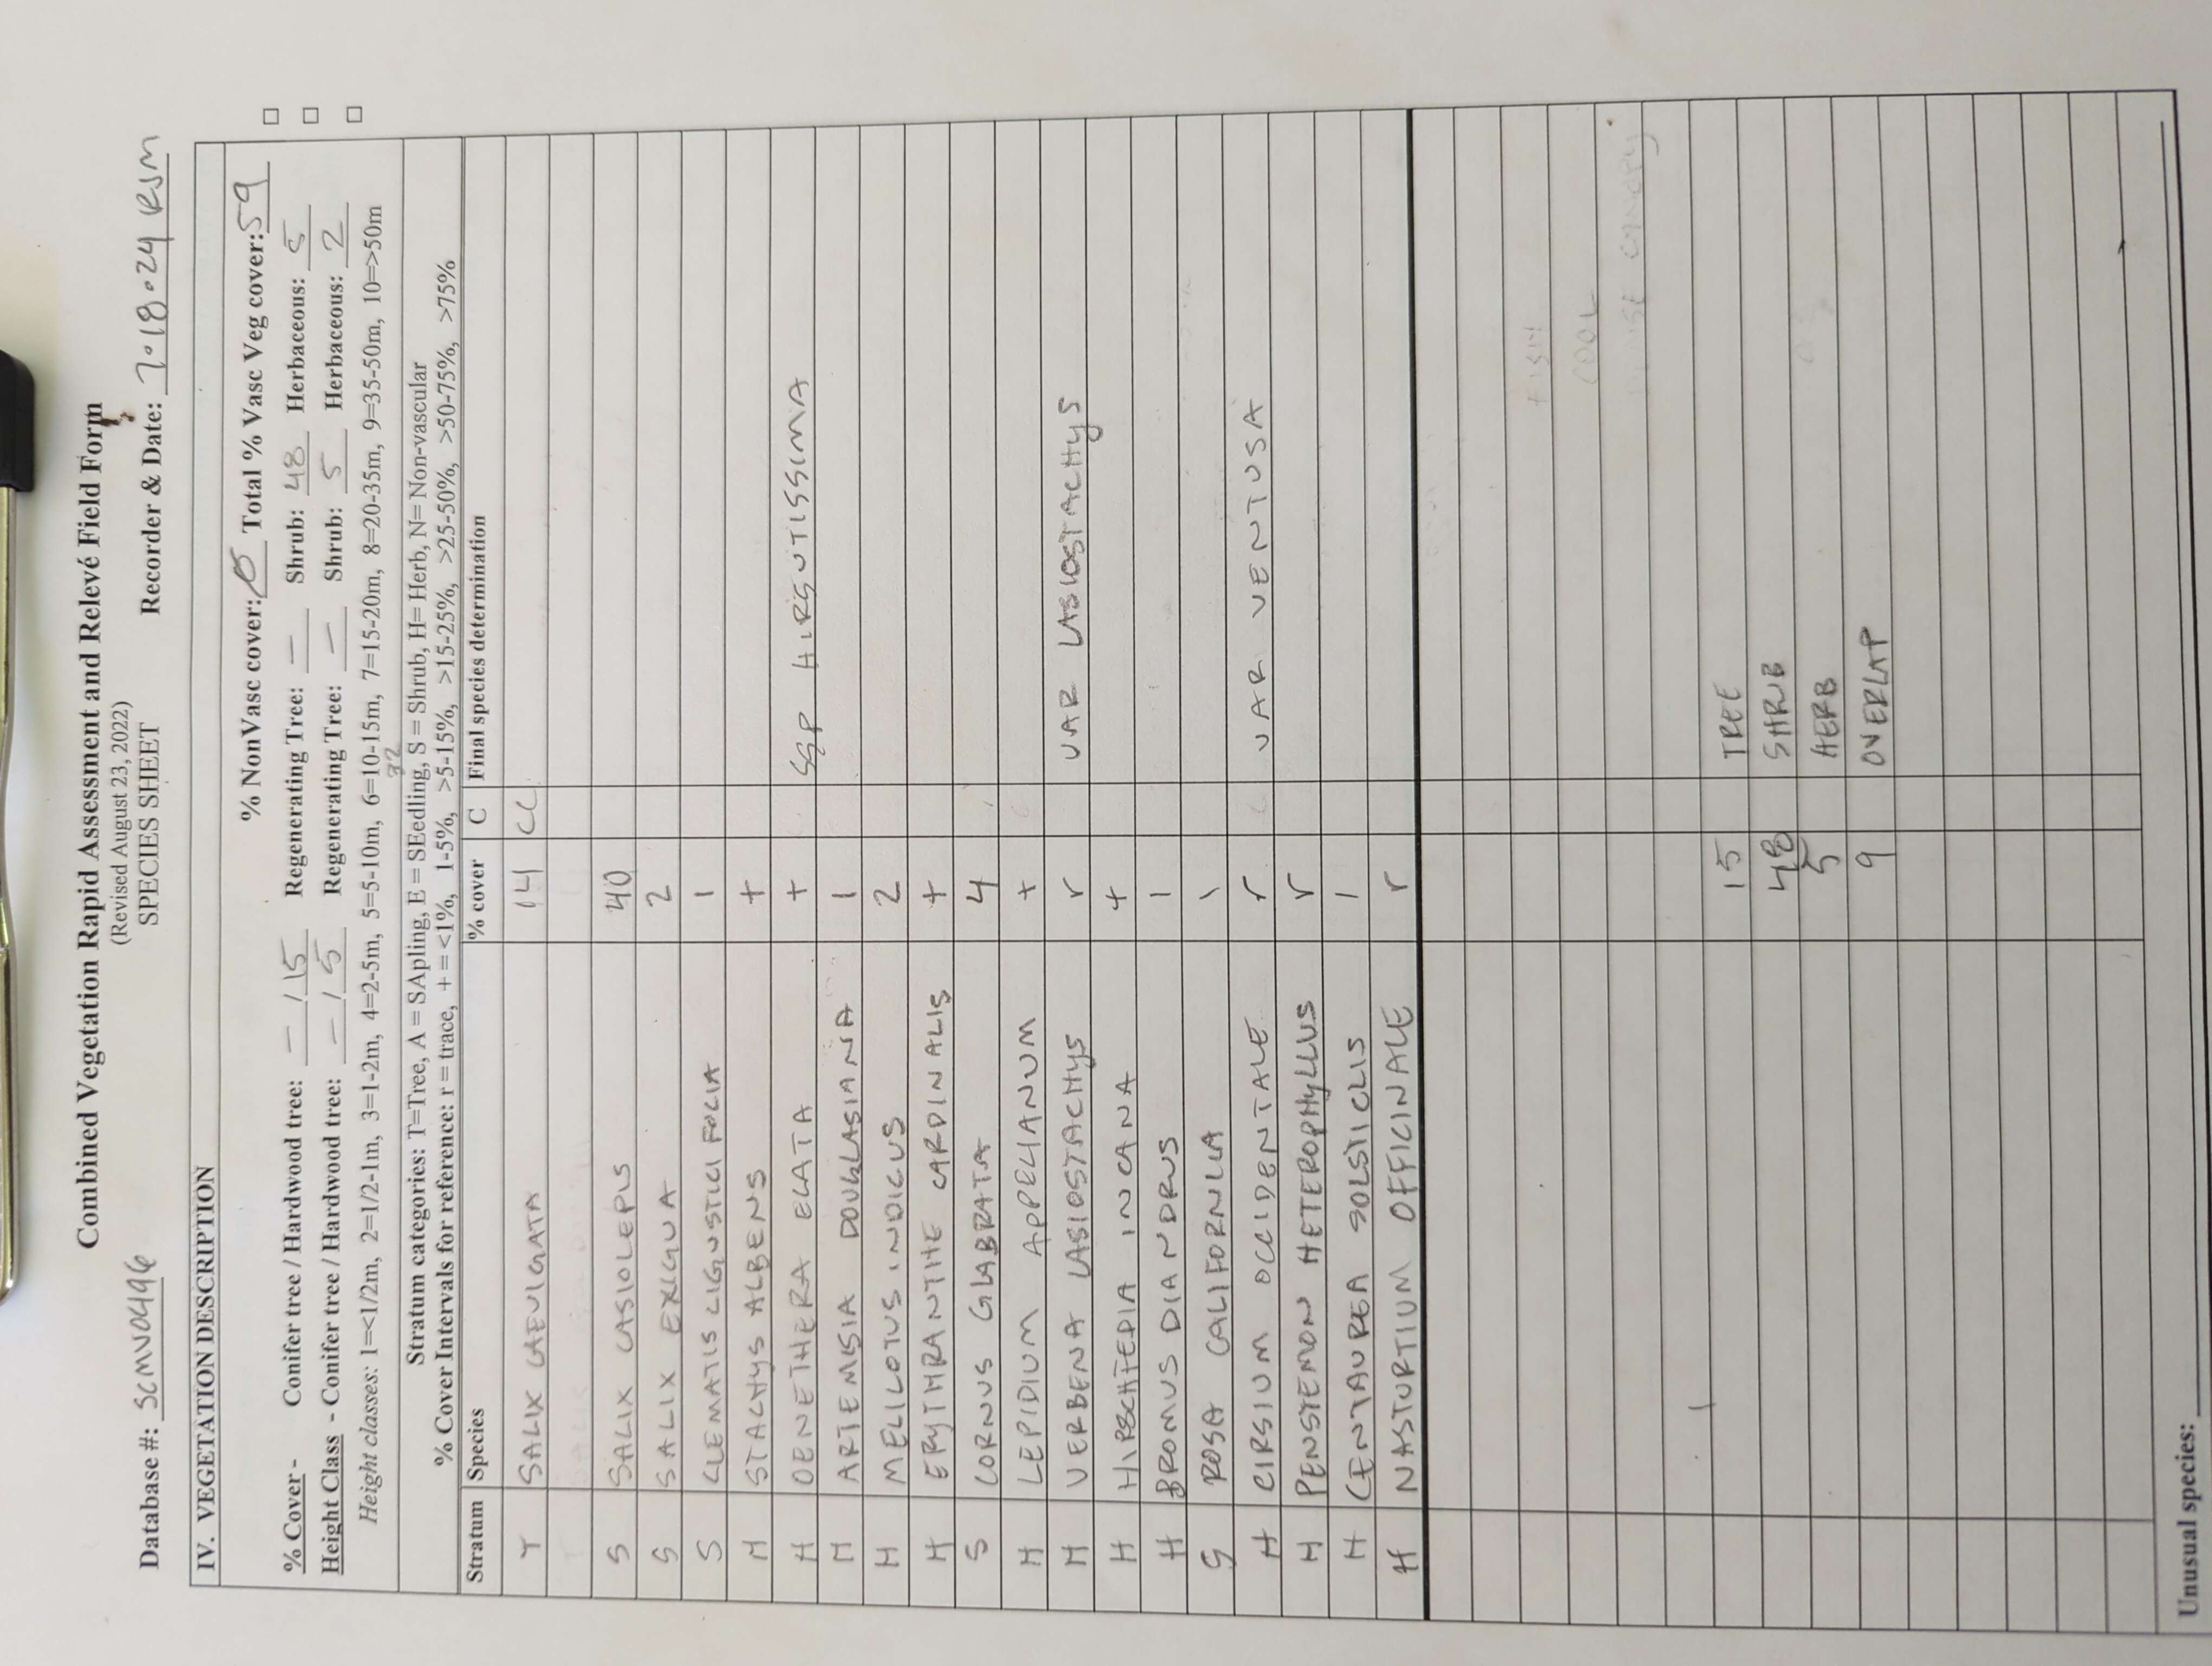 Combined Vegetation Rapid Assessment and Relevé Field Form
(Revised August 23, 2022)
Database #: SCMV0496 SPECIES SHEET Recorder & Date: 7·18·24 RJM
IV. VEGETATION DESCRIPTION
% NonVasc cover: 0 Total % Vasc Veg cover: 59
% Cover - Conifer tree / Hardwood tree: — / 15 Regenerating Tree: — Shrub: 48 Herbaceous: 5
Height Class - Conifer tree / Hardwood tree: — / 5 Regenerating Tree: — Shrub: 5 Herbaceous: 2
Height classes: 1=<1/2m, 2=1/2-1m, 3=1-2m, 4=2-5m, 5=5-10m, 6=10-15m, 7=15-20m, 8=20-35m, 9=35-50m, 10=>50m
Stratum categories: T=Tree, A = SApling, E = SEedling, S = Shrub, H= Herb, N= Non-vascular
% Cover Intervals for reference: r = trace, + = <1%, 1-5%, >5-15%, >15-25%, >25-50%, >50-75%, >75%
Stratum Species % cover C Final species determination
T SALIX LAEVIGATA 14 CC
S SALIX LASIOLEPIS 40
S SALIX EXIGUA 2
S CLEMATIS LIGUSTICIFOLIA 1
H STACHYS ALBENS +
H OENETHERA ELATA + SSP HIRSUTISSIMA
H ARTEMISIA DOUGLASIANA 1
H MELILOTUS INDICUS 2
H ERYTHRANTHE CARDINALIS +
S CORNUS GLABRATA 4
H LEPIDIUM APPELIANUM +
H VERBENA LASIOSTACHYS r VAR LASIOSTACHYS
H HIRSCHFEDIA INCANA +
H BROMUS DIANDRUS 1
S ROSA CALIFORNICA 1
H CIRSIUM OCCIDENTALE r VAR VENTUSA
H PENSTEMON HETEROPHYLLUS r
H CENTAUREA SOLSTICLIS 1
H NASTURTIUM OFFICINALE r
FISH
COOL
15 TREE
48 SHRUB
5 HERB
9 OVERLAP
Unusual species: